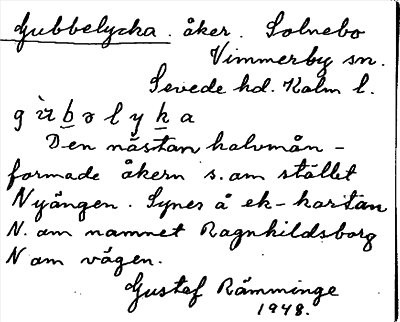 Gubbelycka. åker. Solnebo
Vimmerby sn.
Sevede hd. Kalm l.
g ù b ə l y k a
Den nästan halvmån-
formade åkern s. om stället
Nyängen. Synes å ek-kartan
N. om namnet Ragnhildsborg
N om vägen.
Gustef Rämminge
1948.